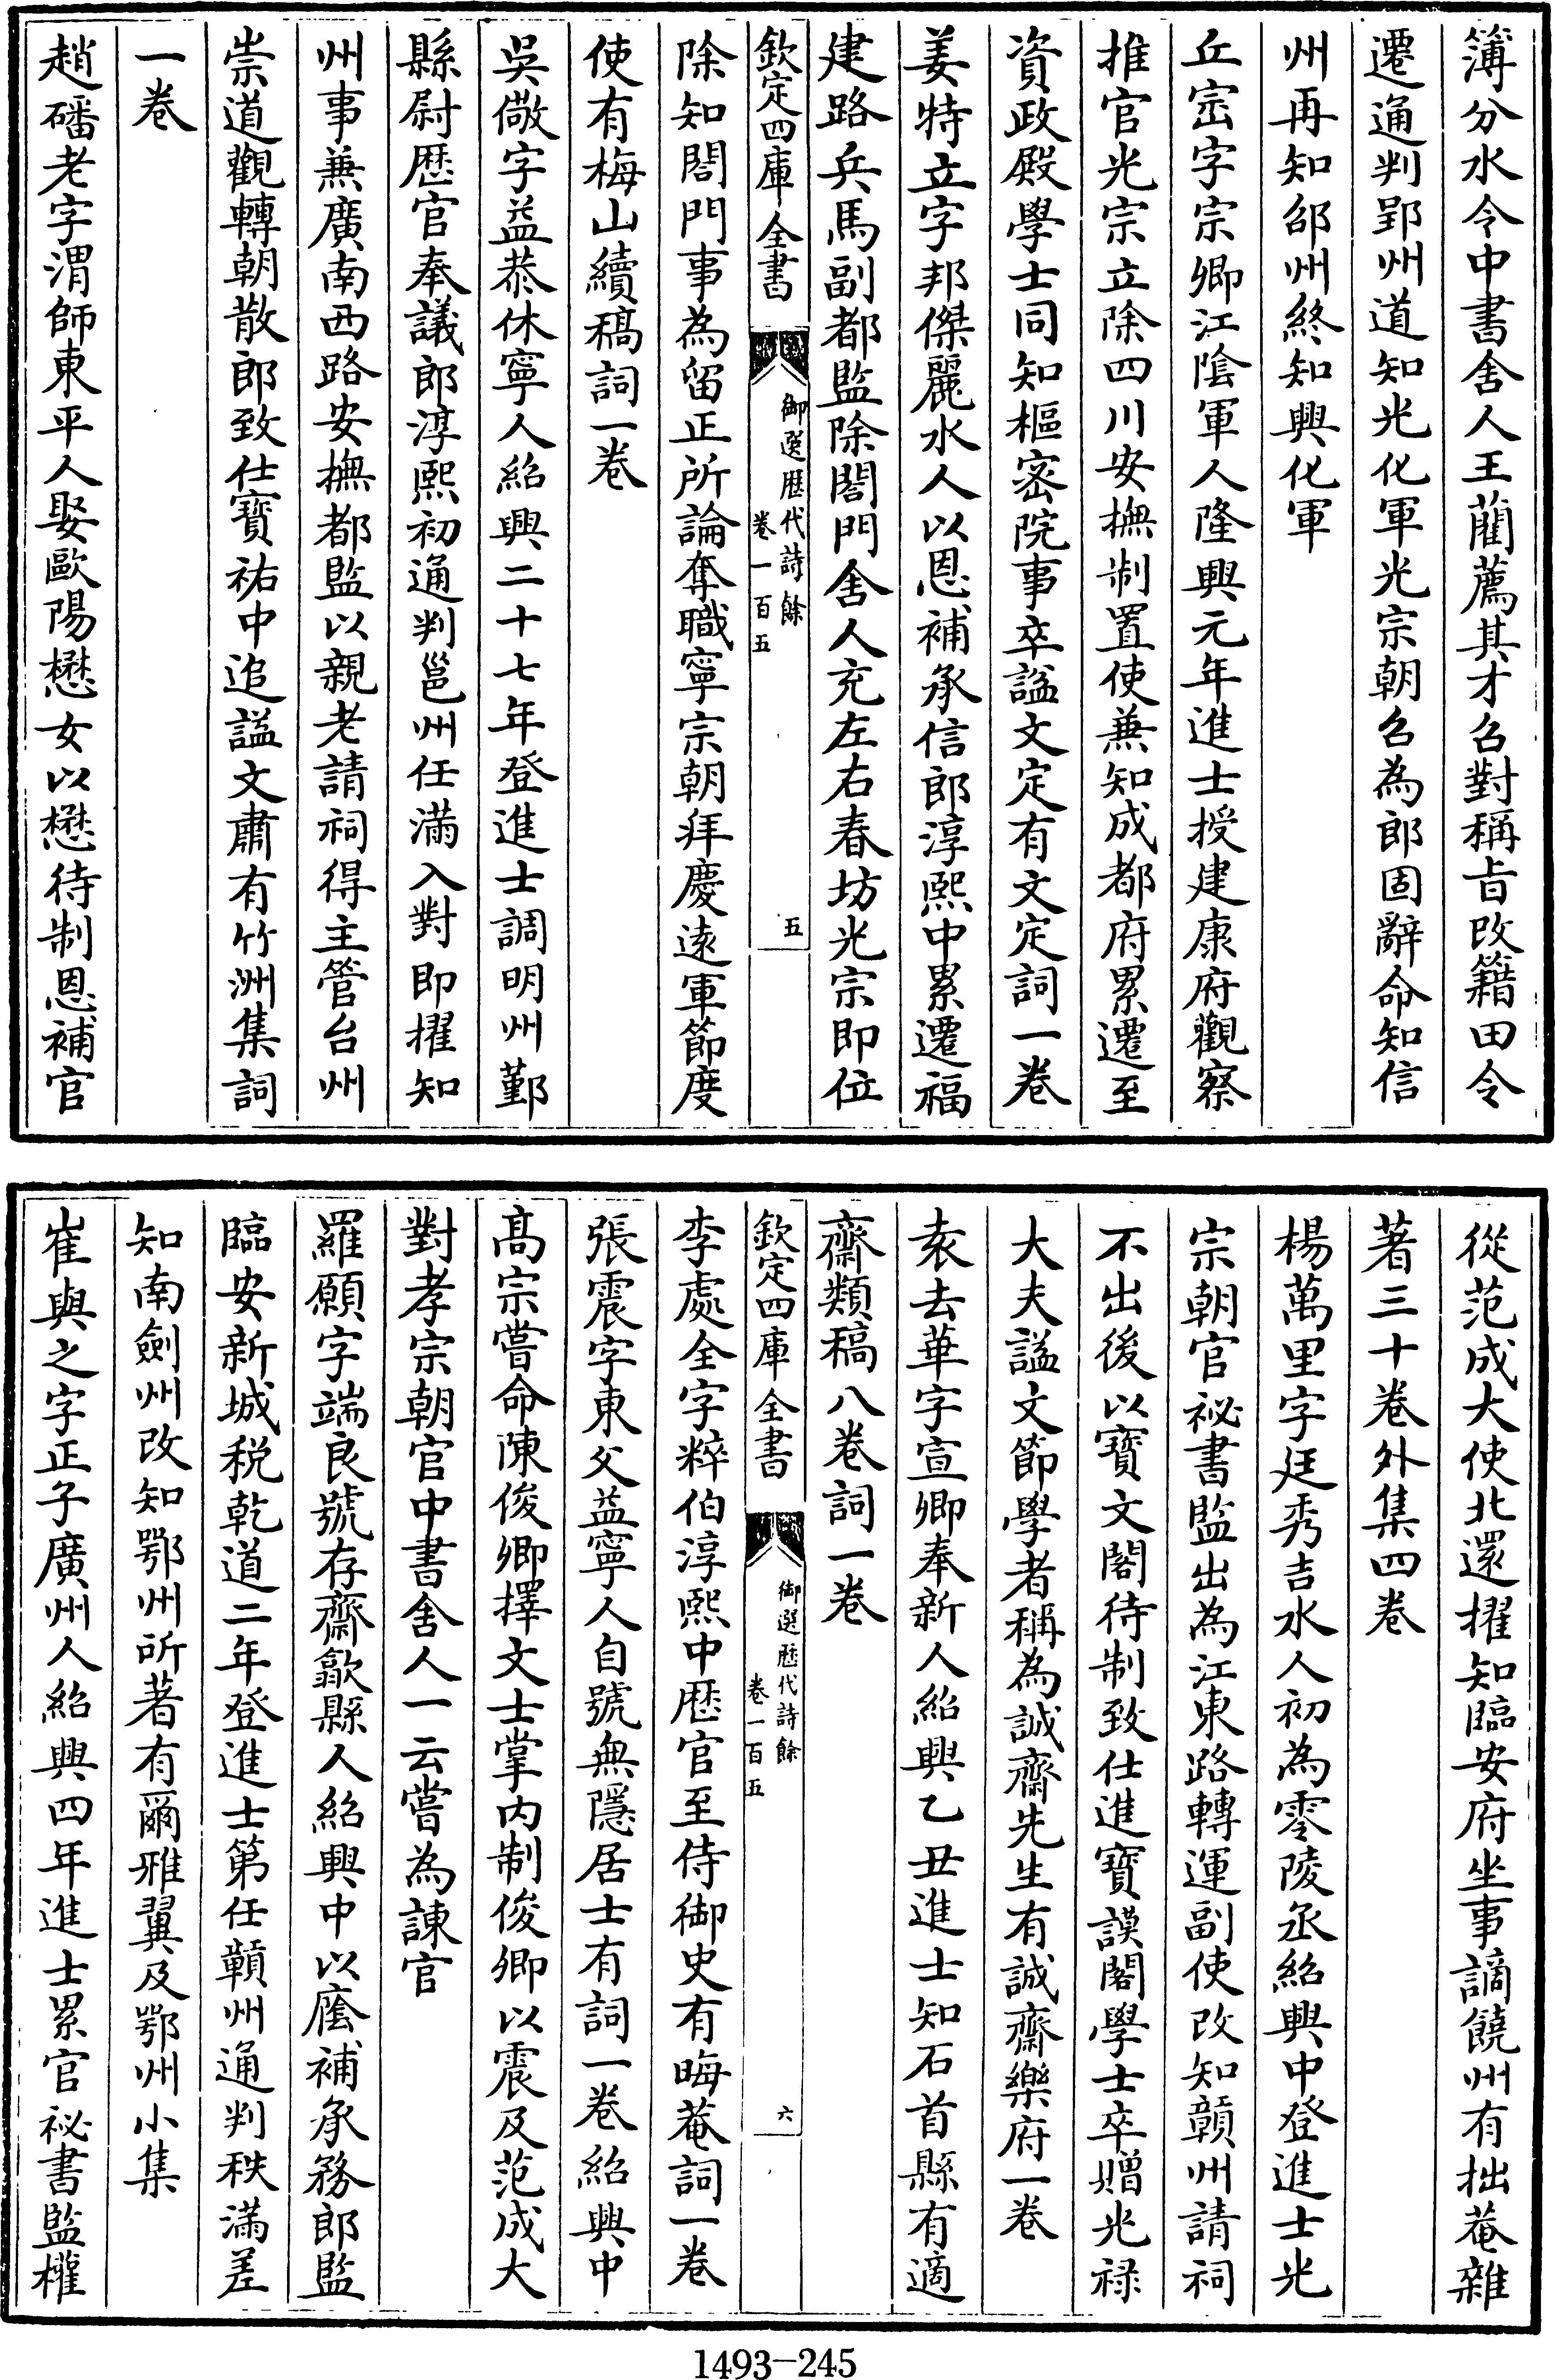 簿分水令中書舍人王藺薦其才召對稱旨改籍田令
遷通判郢州道知光化軍光宗朝召為郎固辭命知信
州再知邵州終知興化軍
丘崈字宗卿江陰軍人隆興元年進士授建康府觀察
推官光宗立除四川安撫制置使兼知成都府累遷至
資政殿學士同知樞密院事卒諡文定有文定詞一卷
姜特立字邦傑麗水人以恩補承信郎淳熙中累遷福
建路兵馬副都監除閤門舍人充左右春坊光宗即位
欽定四庫全書
御選歷代詩餘
卷一百五
五
除知閤門事為留正所論奪職寧宗朝拜慶逺軍節度
使有梅山續稿詞一卷
吳儆字益恭休寧人紹興二十七年登進士調明州鄞
縣尉歷官奉議郎淳熙初通判邕州任滿入對即擢知
州事兼廣南西路安撫都監以親老請祠得主管台州
崇道觀轉朝散郎致仕寶祐中追諡文肅有竹洲集詞
一卷
趙磻老字渭師東平人娶歐陽懋女以懋待制恩補官
從范成大使北還擢知臨安府坐事謫饒州有拙菴雜
著三十卷外集四卷
楊萬里字廷秀吉水人初為零陵丞紹興中登進士光
宗朝官祕書監出為江東路轉運副使改知贑州請祠
不出後以寶文閣待制致仕進寶謨閣學士卒贈光禄
大夫諡文節學者稱為誠齋先生有誠齋樂府一卷
袁去華字宣卿奉新人紹興乙丑進士知石首縣有適
齋類稿八卷詞一卷
欽定四庫全書
御選歷代詩餘
卷一百五
六
李處全字粹伯淳熙中歷官至侍御史有晦菴詞一卷
張震字東父益寧人自號無隱居士有詞一卷紹興中
高宗嘗命陳俊卿擇文士掌内制俊卿以震及范成大
對孝宗朝官中書舍人一云嘗為諫官
羅願字端良號存齋歙縣人紹興中以廕補承務郎監
臨安新城税乾道二年登進士第任贑州通判秩滿差
知南劍州改知鄂州所著有爾雅翼及鄂州小集
崔與之字正子廣州人紹興四年進士累官祕書監權
1493-245